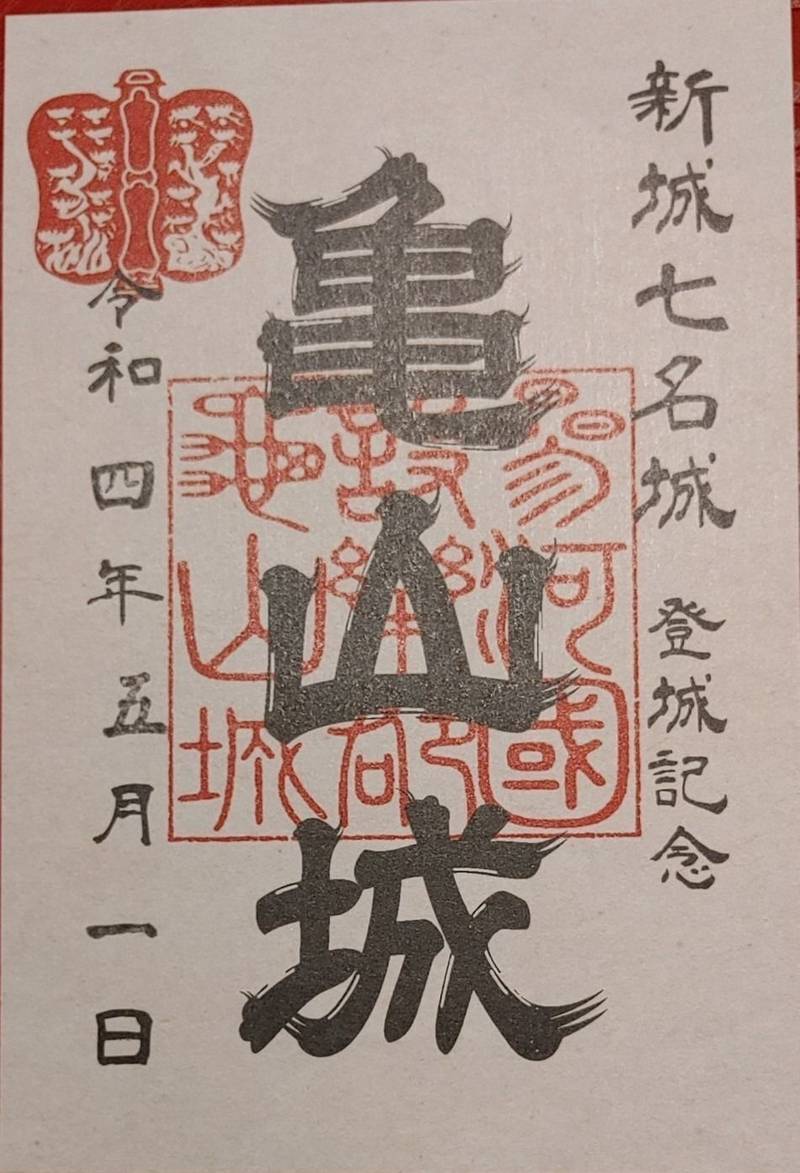 新城七名城 登城記念
亀山城
令和四年五月一日